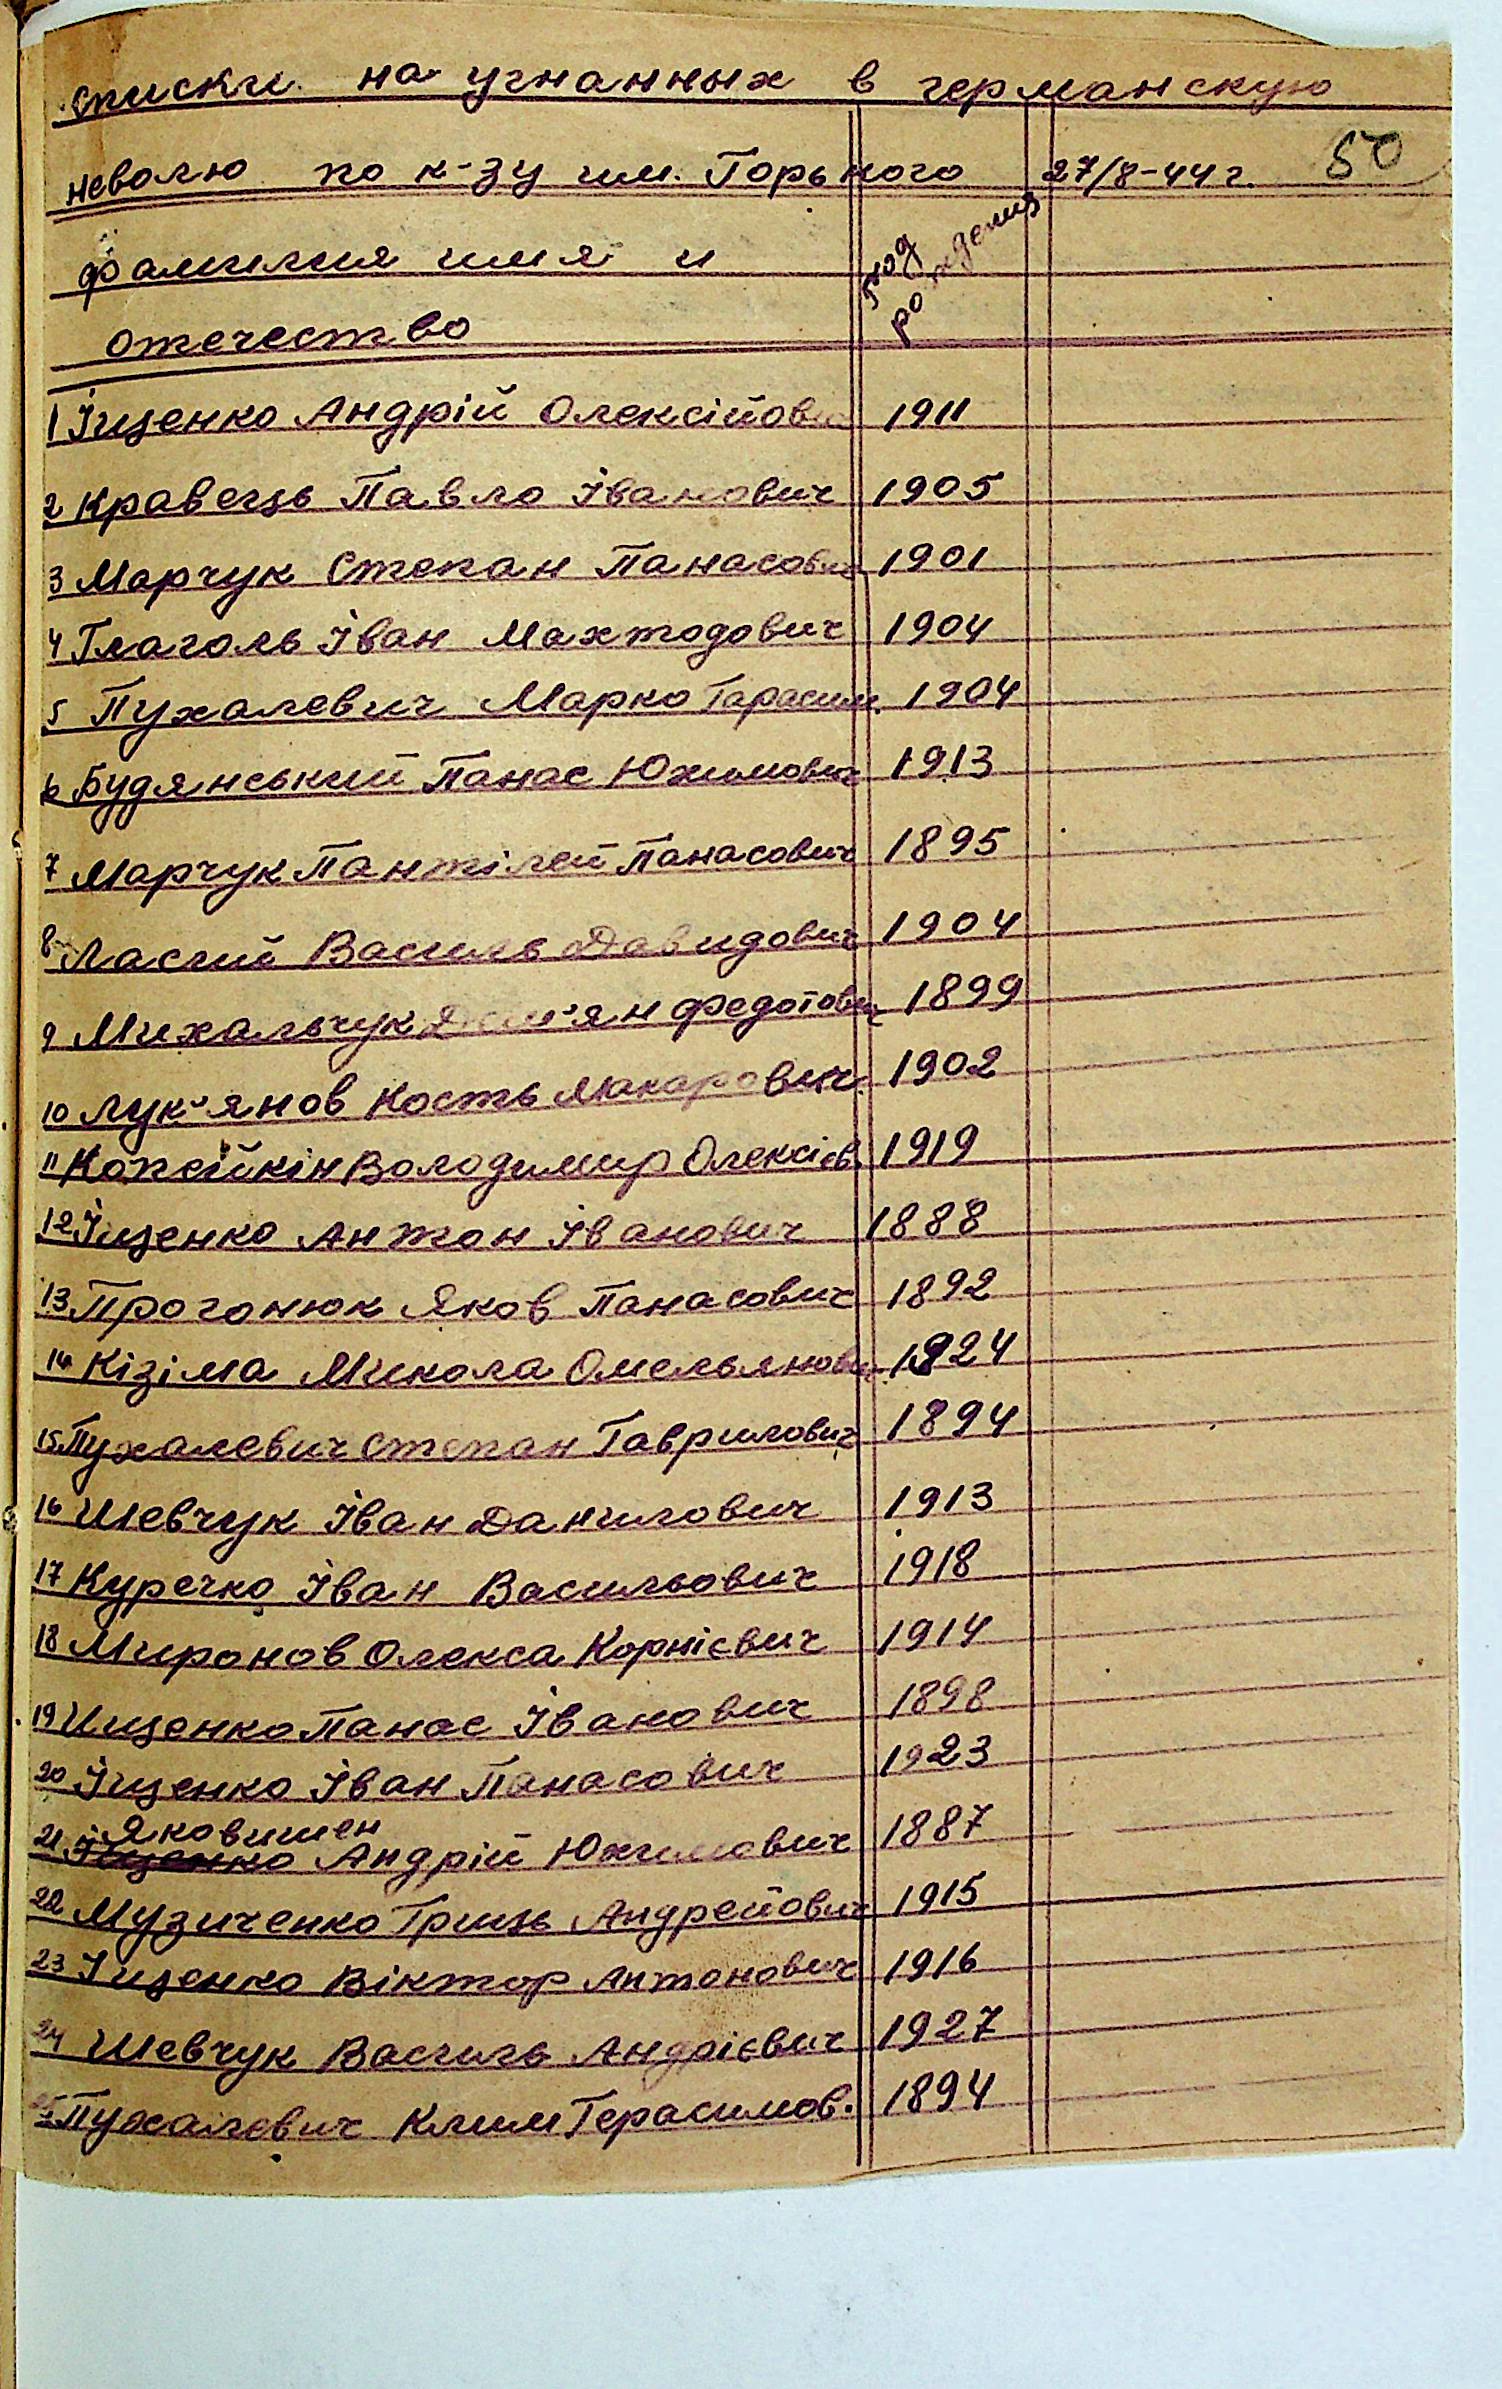 списки на угнанных в германскую
неволю по к-зу им. Горького 27/8-44 г. 50
фамилия имя и отечество год рождения
1 Іщенко Андрій Олексійович 1911
2 Кравець Павло Іванович 1905
3 Марчук Степан Панасович 1901
4 Глаголь Іван Махтодович 1904
5 Пухалевич Марко Гарасим. 1904
6 Будянський Панас Юхимович 1913
7 Марчук Пантілей Панасович 1895
8 Ласий Василь Давидович 1904
9 Михальчук Дем'ян Федотович 1899
10 Лук'янов Кость Макарович 1902
11 Копєйкін Володимир Олексієв. 1919
12 Іщенко Антон Іванович 1888
13 Прогонюк Яков Панасович 1892
14 Кізіма Микола Омельянович 1924
15 Пухалевич Степан Гаврилович 1894
16 Шевчук Іван Данилович 1913
17 Куречко Іван Васильович 1918
18 Миронов Олекса Корнієвич 1914
19 Ищенко Панас Іванович 1898
20 Іщенко Іван Панасович 1923
Яковишен
21 Іщенко Андрій Юхимович 1887
22 Музиченко Гриць Андрейович 1915
23 Іщенко Віктор Антонович 1916
24 Шевчук Василь Андрієвич 1927
25 Пухалевич Клим Герасимов. 1894